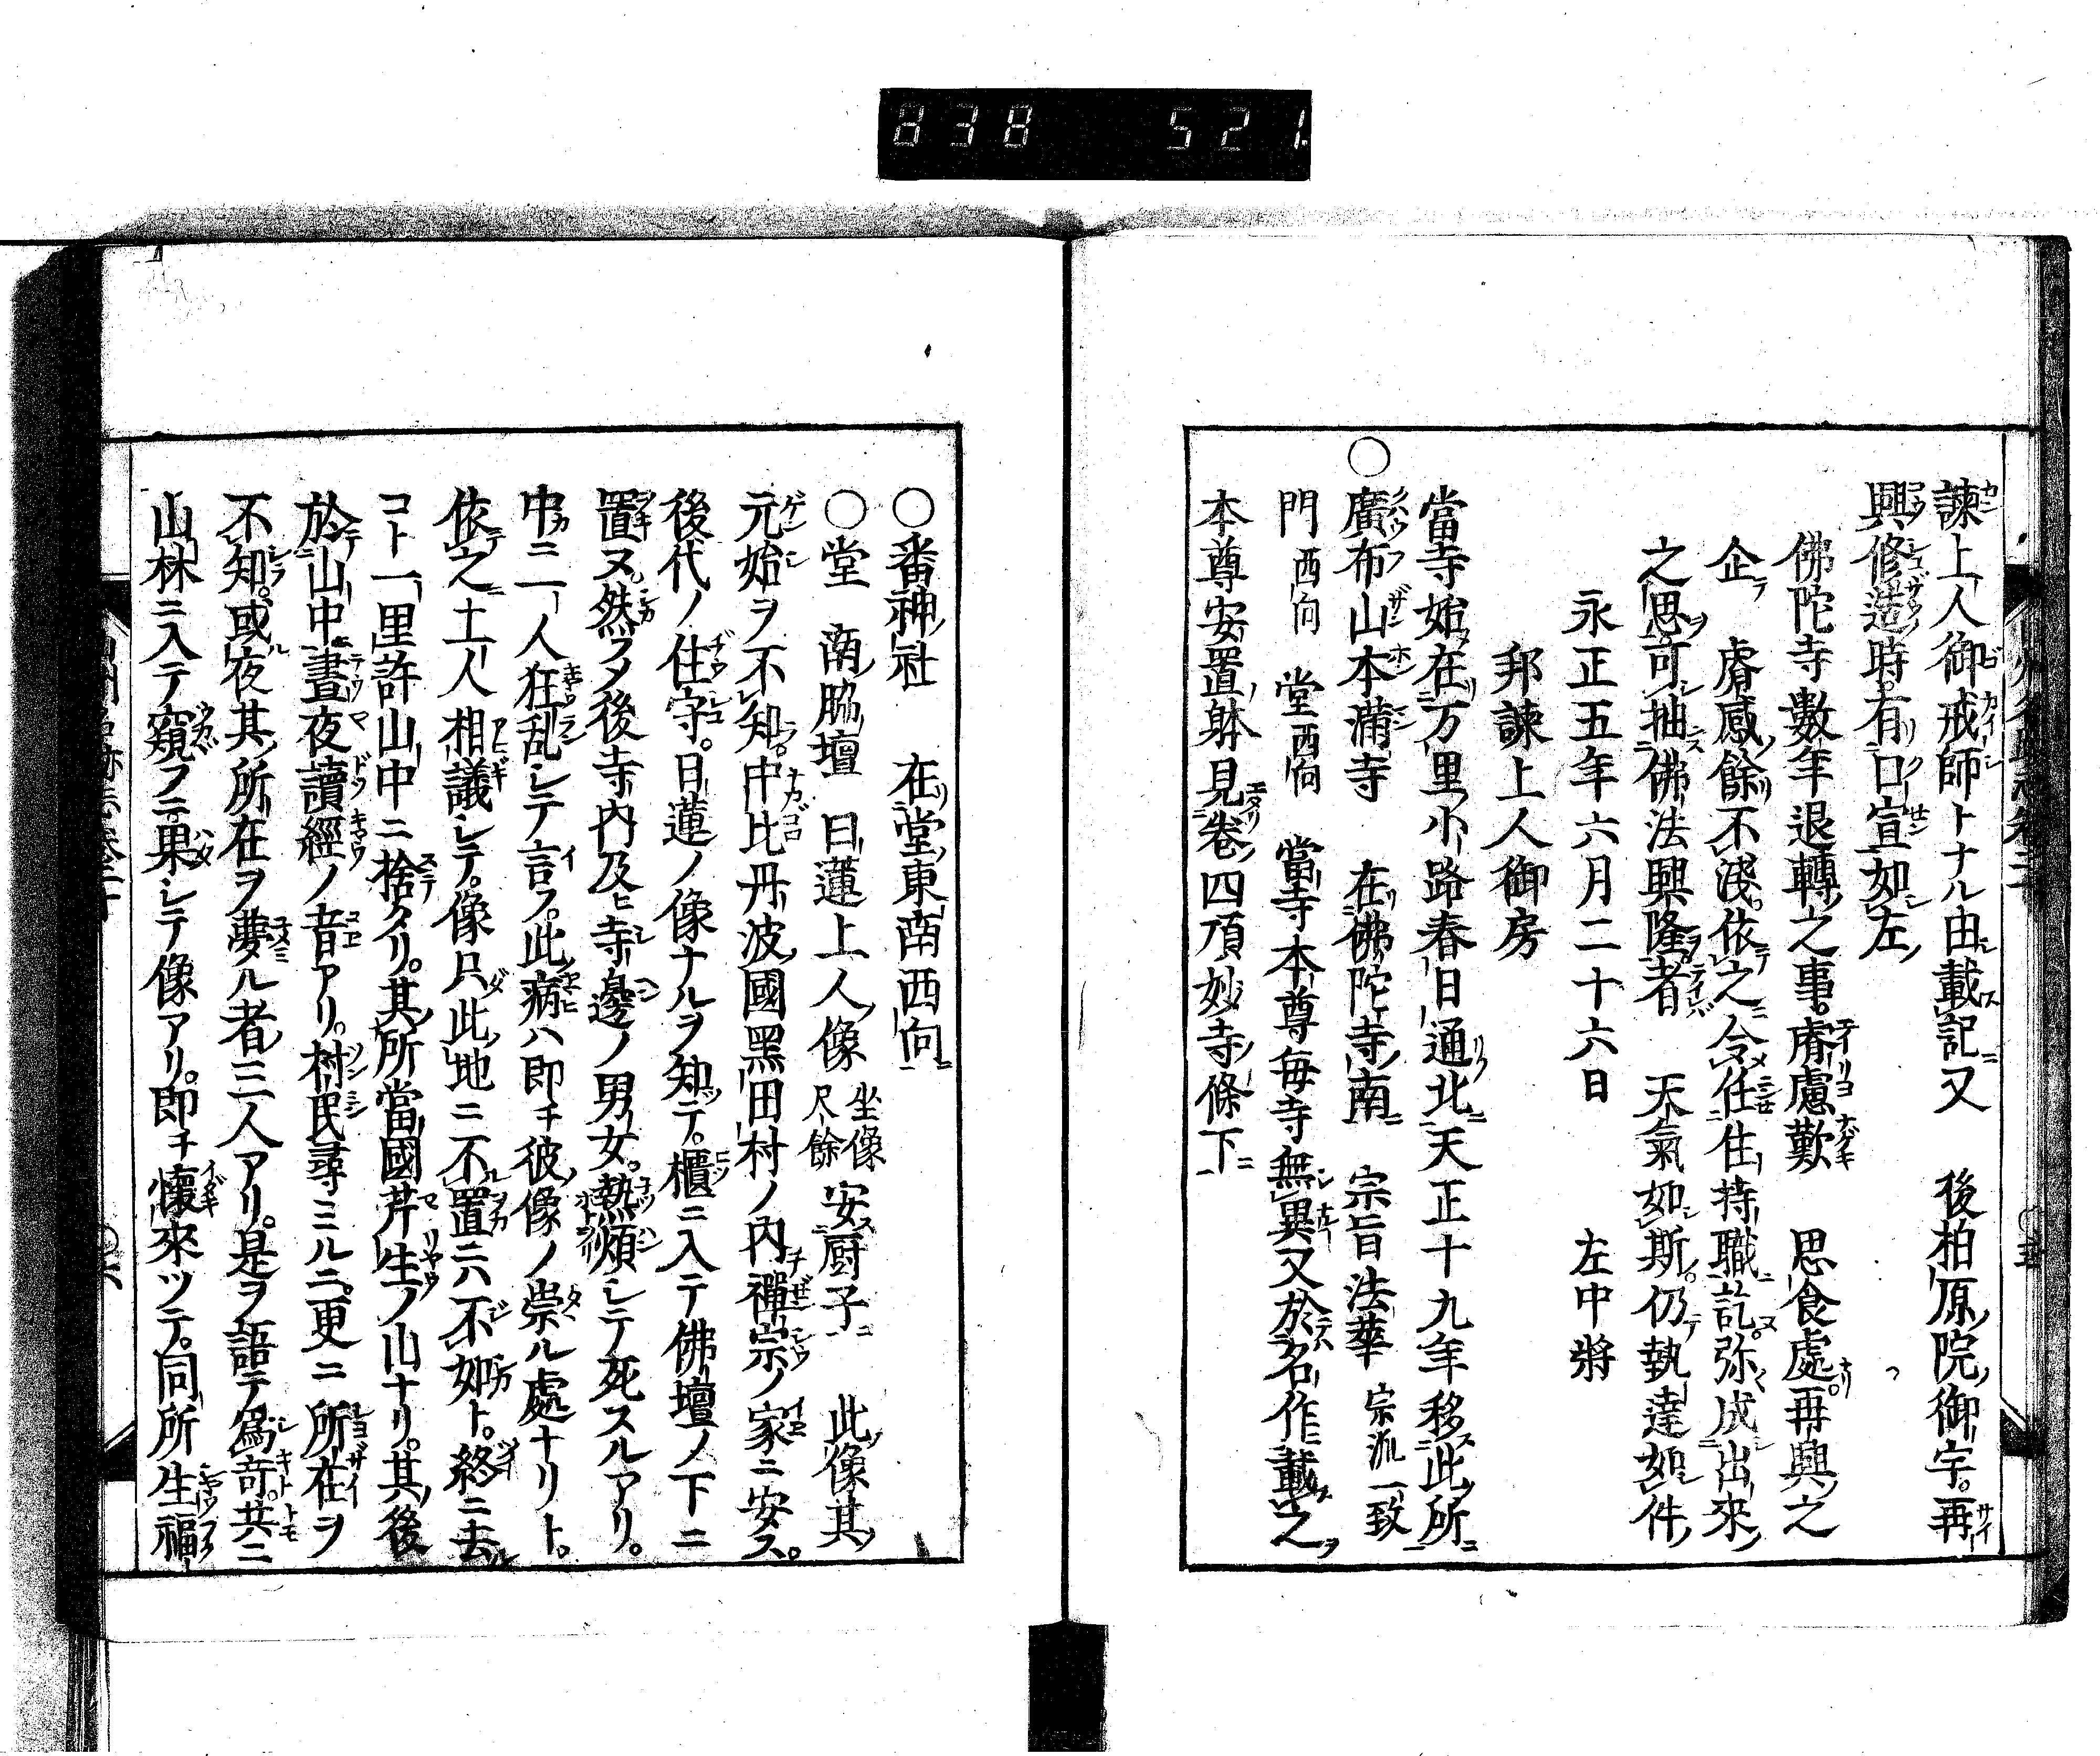 838 521
諫上人御戒師トナル由載記又 後柏原院御宇。再
興修造時。有口宣如左
佛陀寺數年退轉之事。睿慮歎 思食處。再興之
企 睿感餘不淺。依之令任住持職訖。弥成出來
之思。可抽佛法興隆者 天氣如斯。仍執達如件
永正五年六月二十六日 左中將
邦諫上人御房
當寺始在万里小路春日通北天正十九年移此所
○廣布山本滿寺 在佛陀寺南 宗旨法華 宗派一致
門 西向 堂 西向 當寺本尊每寺無異又於名作載之
本尊安置躰見卷四頂妙寺條下
○番神社 在堂東南西向
○堂 南脇壇 日蓮上人像 坐像尺餘 安厨子 此像其
元始ヲ不知。中比丹波國黑田村ノ內禪宗ノ家ニ安ス。
後代ノ住守。日蓮ノ像ナルヲ知テ。櫃ニ入テ佛壇ノ下ニ
置ヌ。然ヲメ後寺內及ヒ寺邊ノ男女。熱煩シテ死スルアリ。
中ニ一人狂乱シテ言フ。此病ハ即チ彼像ノ崇ル處ナリト。
依之土人相議シテ。像只此地ニ不置ニハ不如ト。終ニ去
コト一里許山中ニ捨タリ。其所當國芹生ノ山ナリ。其後
於山中晝夜讀經ノ音アリ。村民尋ミルニ。更ニ所在ヲ
不知。或夜其所在ヲ夢ル者三人アリ。是ヲ語テ爲奇。共ニ
山林ニ入テ窺フニ果シテ像アリ。即チ懷來ツテ。同所生福